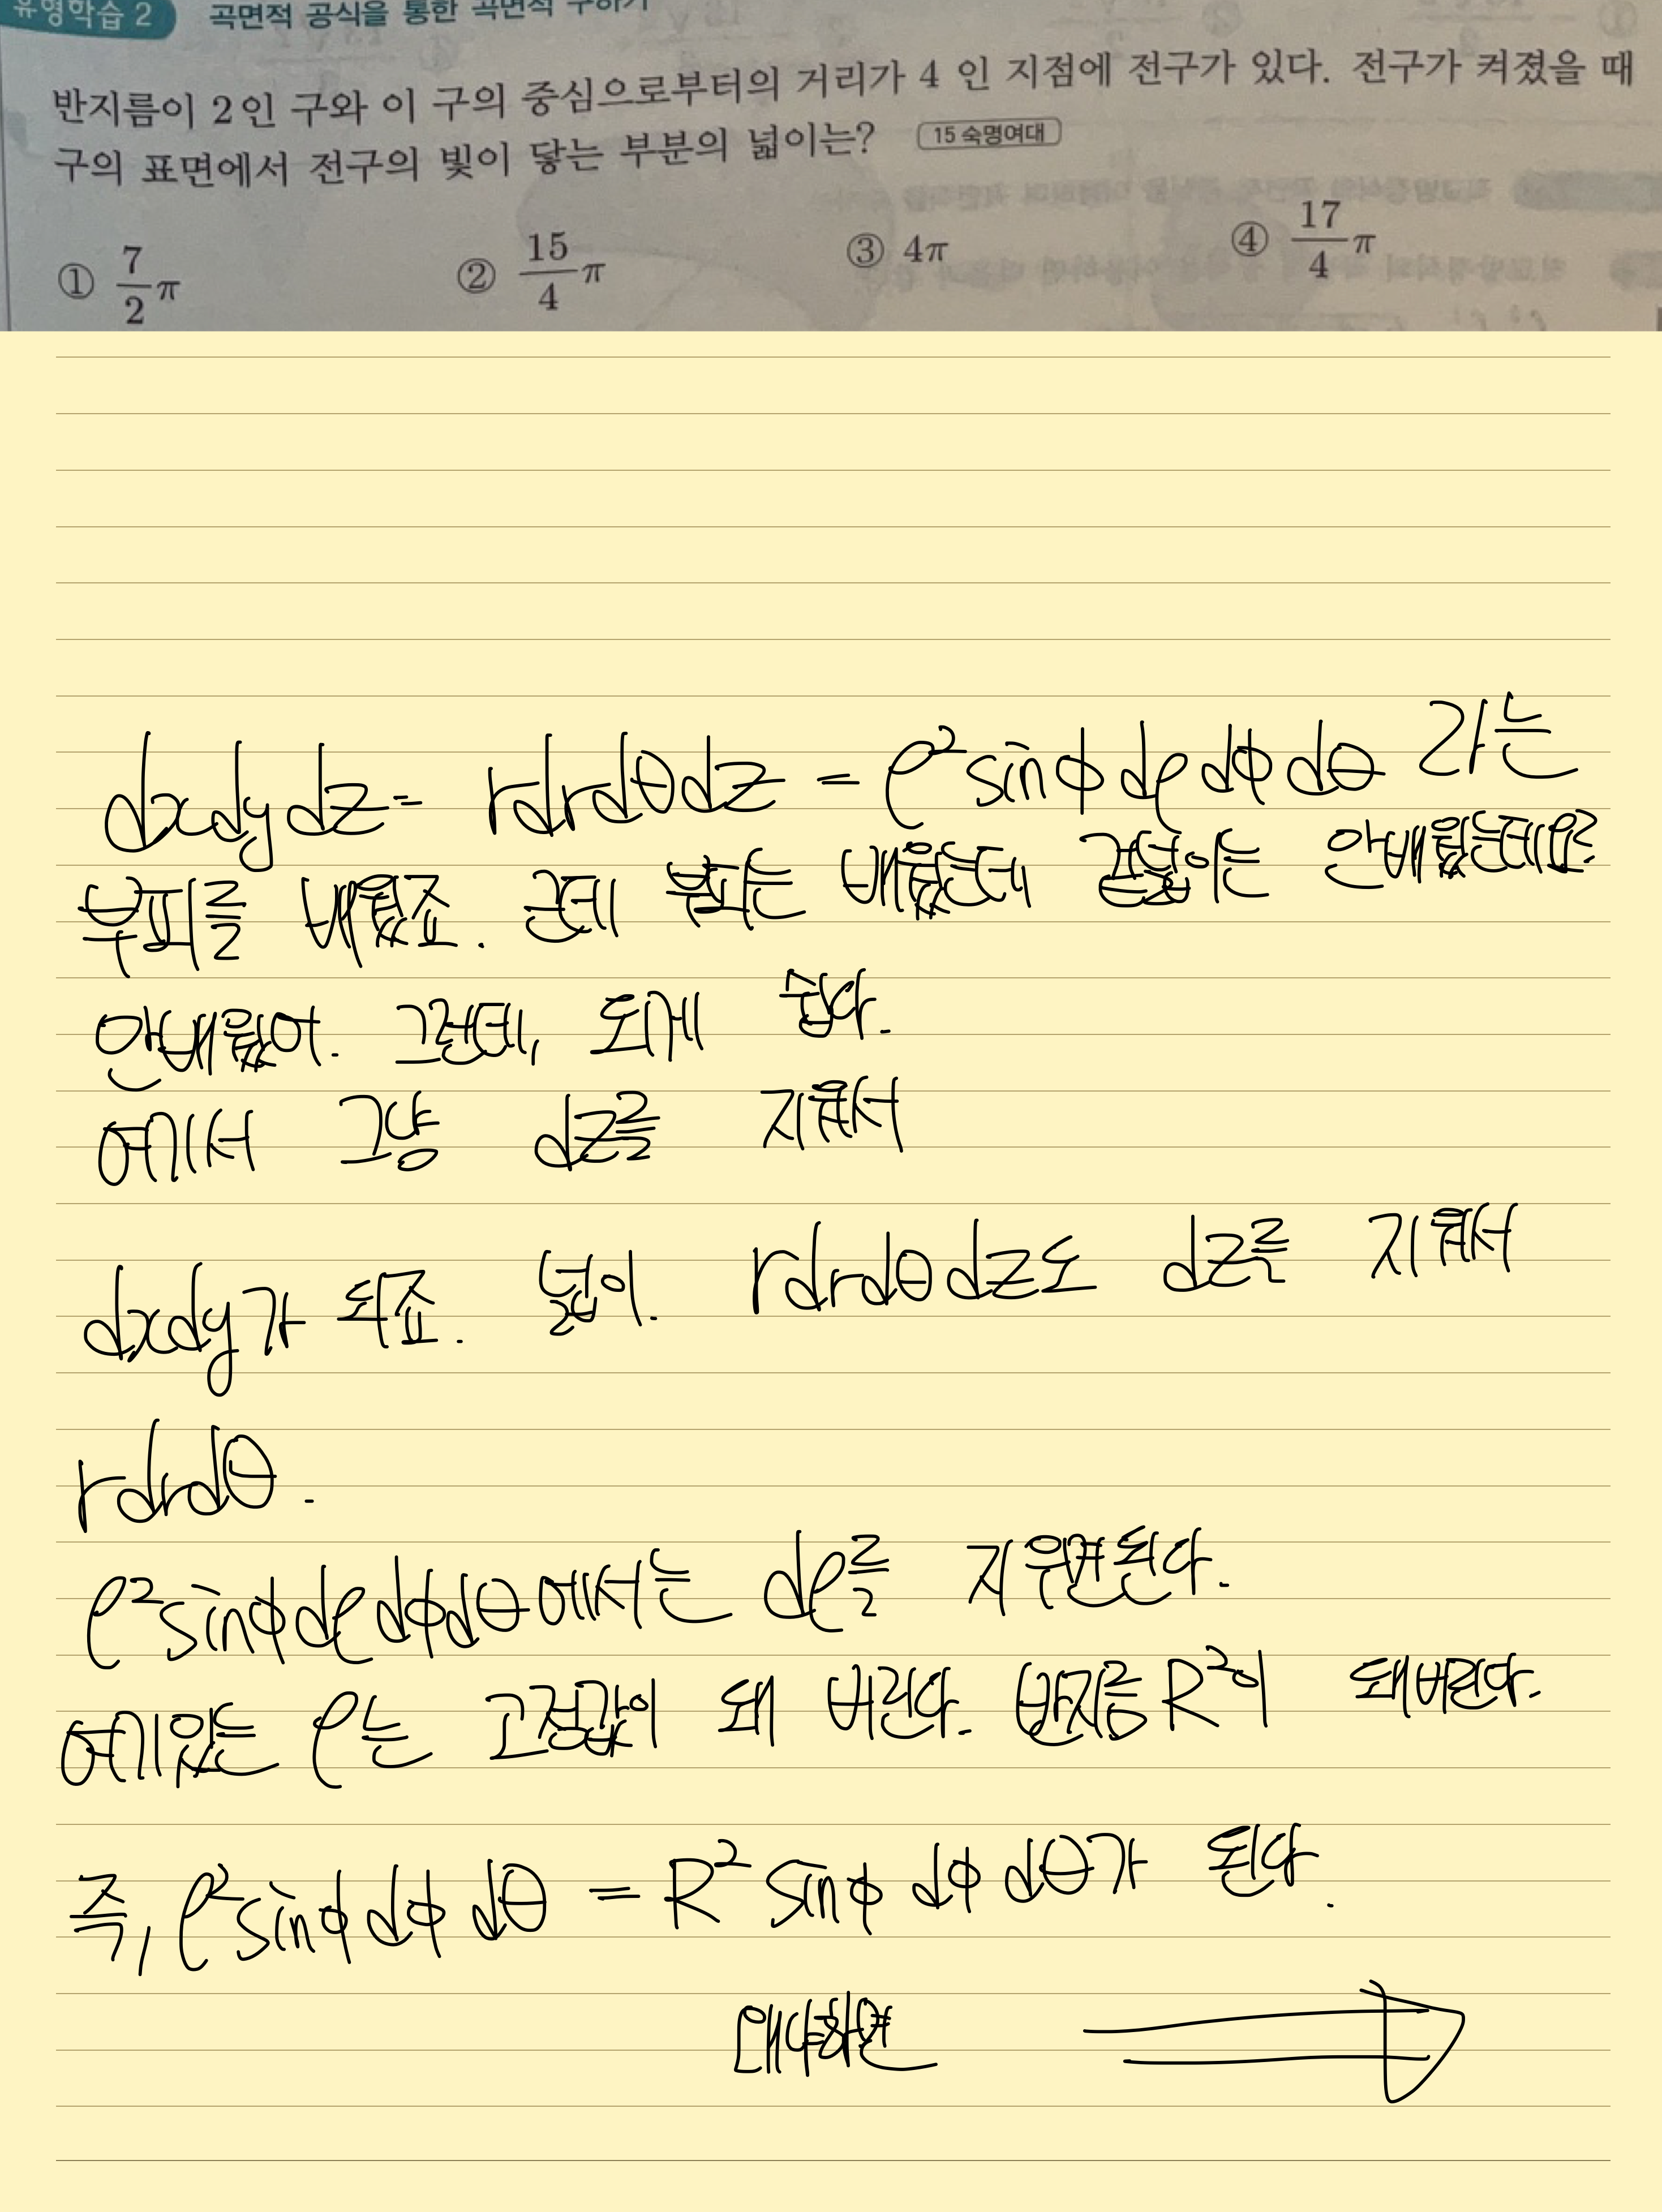 유형학습 2 곡면적 공식을 통한 곡면적 구하기
반지름이 2인 구와 이 구의 중심으로부터의 거리가 4 인 지점에 전구가 있다. 전구가 켜졌을 때
구의 표면에서 전구의 빛이 닿는 부분의 넓이는? 15 숙명여대
① 7/2 π ② 15/4 π ③ 4π ④ 17/4 π
dxdydz = rdrdθdz = ρ² sinφ dρ dφ dθ 라는
부피를 배웠죠. 근데 부피는 배웠는데 겉넓이는 안배웠는데요?
안배웠어. 그런데, 되게 쉽다.
여기서 그냥 dz를 지워서
dxdy가 되죠. 넓이. rdrdθdz도 dz를 지워서
rdrdθ.
ρ²sinφdρdφdθ에서는 dρ를 지우면된다.
여기있는 ρ는 고정값이 돼 버린다. 반지름 R²이 돼버린다.
즉, ρ²sinφdφdθ = R² sinφ dφ dθ가 된다.